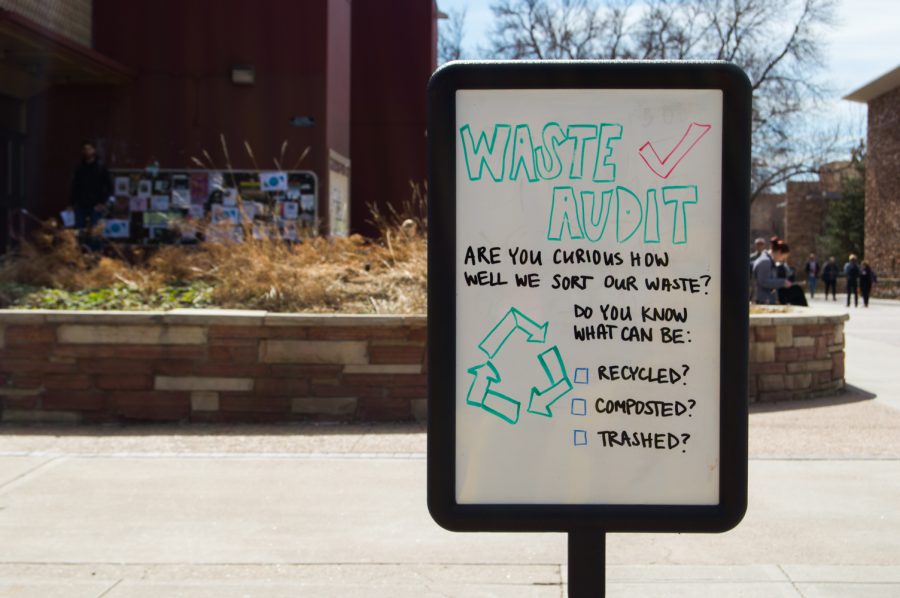 WASTE
AUDIT
ARE YOU CURIOUS HOW
WELL WE SORT OUR WASTE?
DO YOU KNOW
WHAT CAN BE:
RECYCLED?
COMPOSTED?
TRASHED?